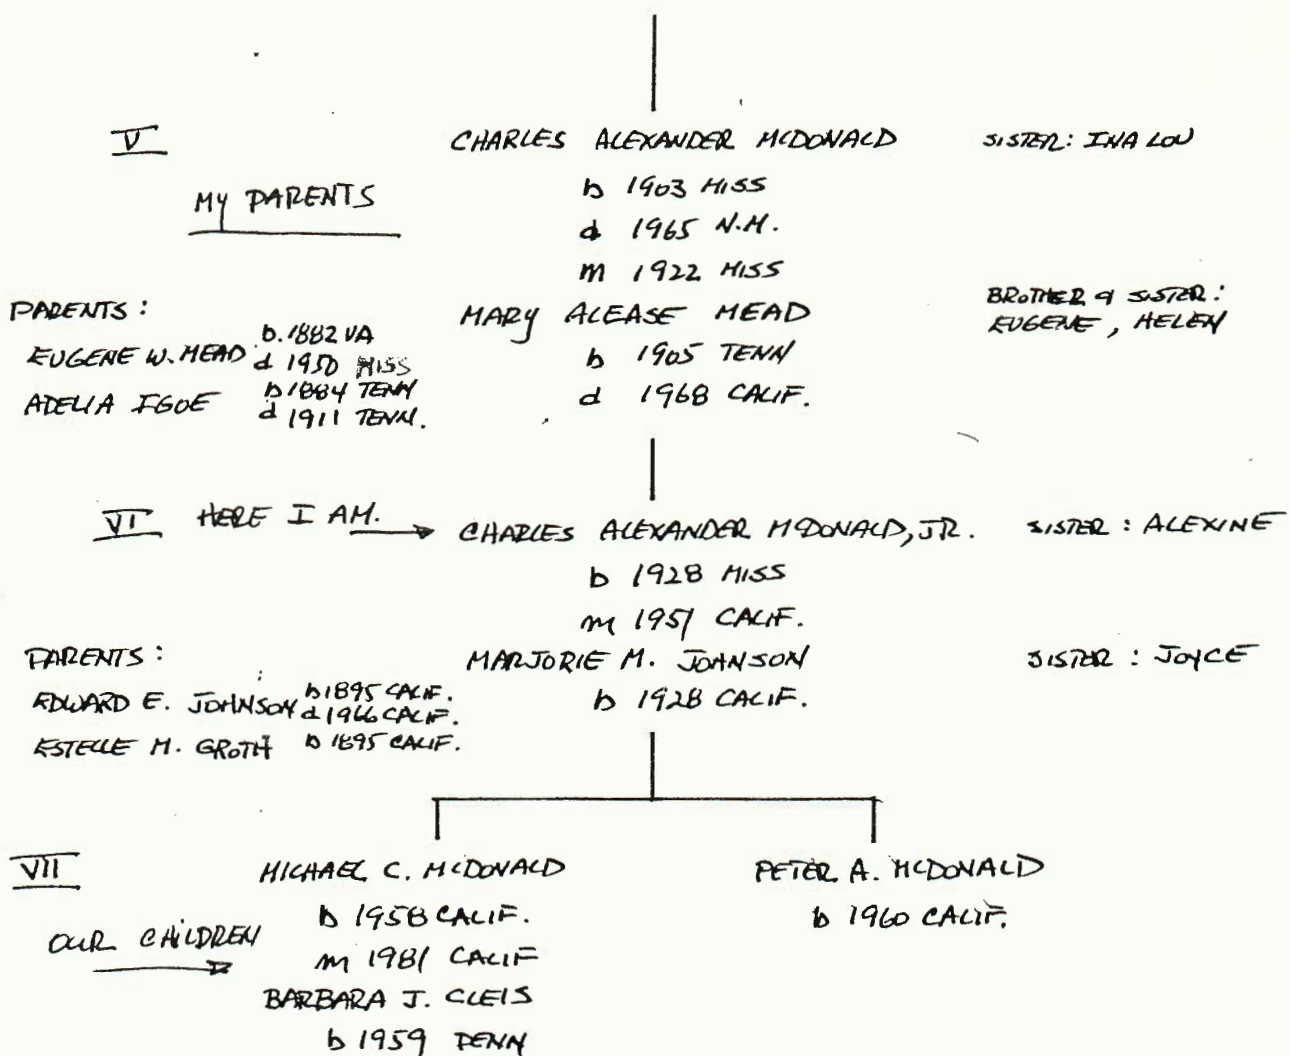 V CHARLES ALEXANDER MCDONALD SISTER: INA LOU
MY PARENTS
b 1903 MISS
d 1965 N.M.
m 1922 MISS
MARY ALEASE MEAD
b 1905 TENN
d 1968 CALIF.
BROTHER & SISTER:
EUGENE, HELEN
PARENTS:
EUGENE W. MEAD b. 1882 VA
d 1950 MISS
ADELIA IGOE b 1884 TENN
d 1911 TENN.
VI HERE I AM. CHARLES ALEXANDER MCDONALD, JR. SISTER: ALEXINE
b 1928 MISS
m 1951 CALIF.
MARJORIE M. JOHNSON SISTER: JOYCE
b 1928 CALIF.
PARENTS:
EDWARD E. JOHNSON b 1895 CALIF.
d 1966 CALIF.
ESTELLE M. GROTH b 1895 CALIF.
VII
OUR CHILDREN
MICHAEL C. MCDONALD
b 1958 CALIF.
m 1981 CALIF
BARBARA J. CLEIS
b 1959 PENN
PETER A. MCDONALD
b 1960 CALIF.